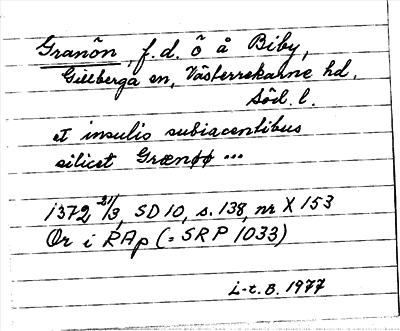 Granõn, f.d. õ å Biby,
Gillberga sn, Västerrekarne hd,
Söd. l.
et insulis subiacentibus
silicet Grænøø ...
1372 21/3, SD 10, s. 138, nr X 153
Or i RAp (= SRP 1033)
L-t. B. 1977